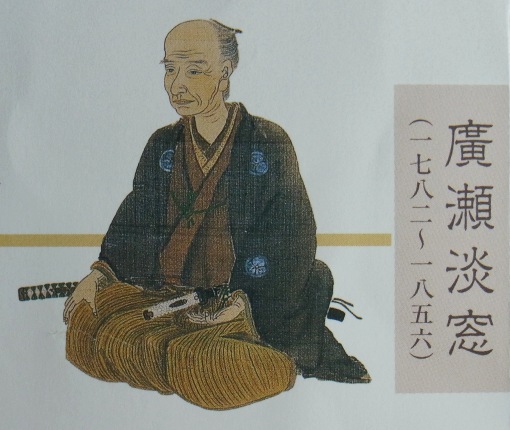 廣瀬淡窓
(一七八二〜一八五六)